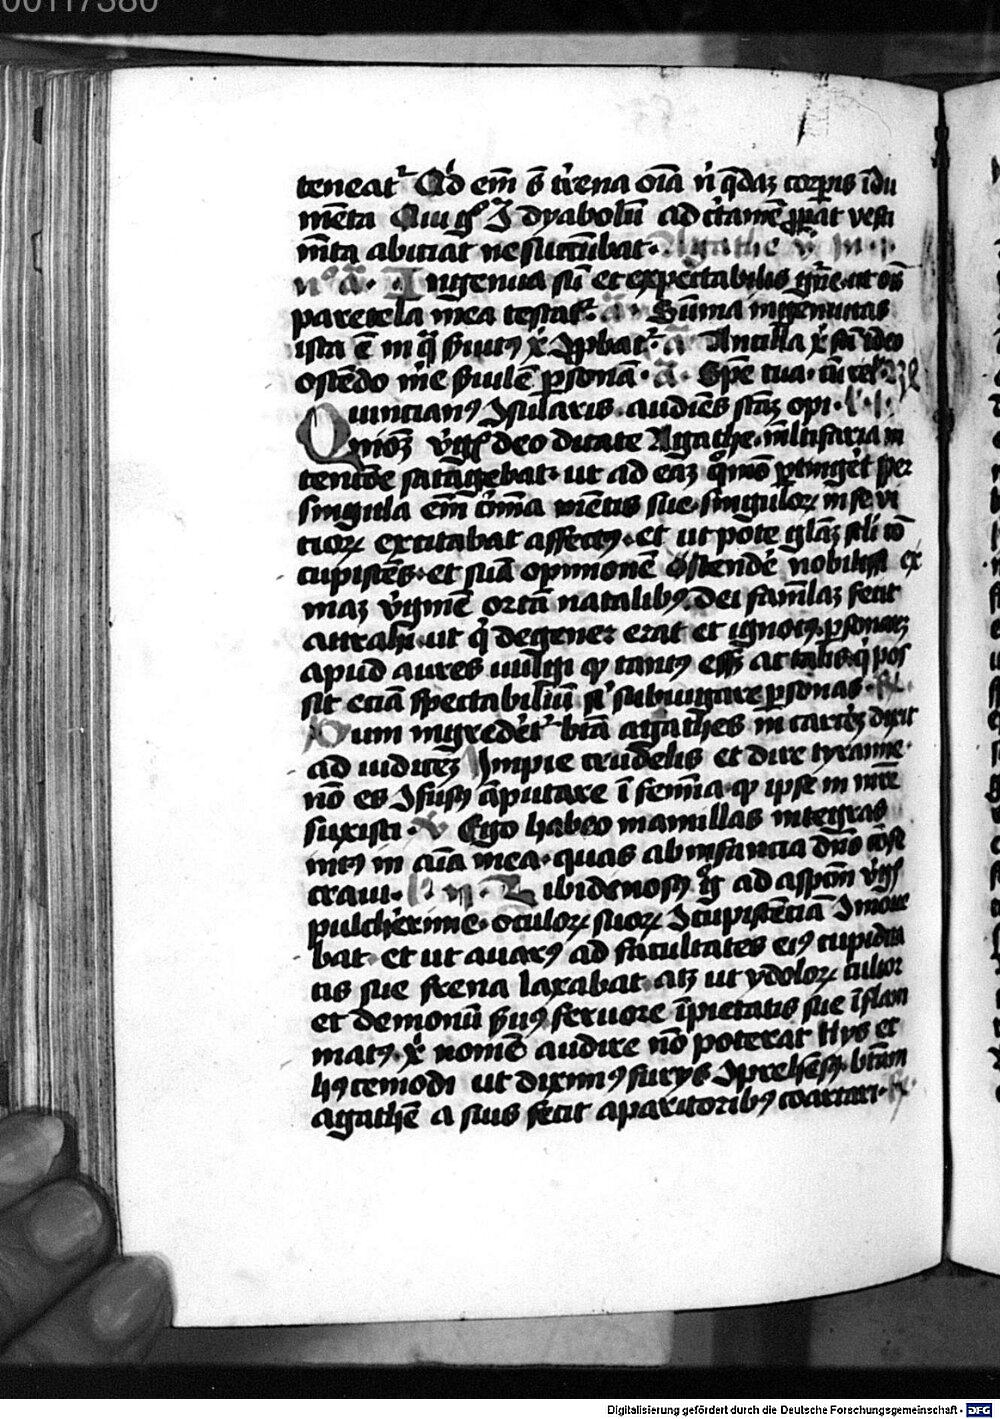 00117380
teneat᷑ Qd em̄ s̄ t̾rena oīa n̄ q̄daʒ corꝑis īdu
mēta Qui g° ꝯ dyabolū ad c̾tamē ꝓꝑat vesti
mn̄ta abiciat ne succūbat· Agathe v̾ m̾·
n° a᷑· Ingenua sū et expectabilis gn̄e· ut oīs
parētela mea testat᷑· a᷑· Sūma ingenuitas
ista ē in q̄ ẜuitꝰ xp̄i ꝯꝓbat᷑· a᷑ Ancilla xp̄i sū ideo
ostēdo me ẜuilē ꝑsonā· a᷑· Spē tua·
Quincianꝰ ꝯsularis· audiēs scāʒ opi·
nionēʒ v̾gīs deo dicate Agathe· ml̄tifaria in
tentōe satagebat· ut ad eaʒ quō ꝑtinget̾ ꝑ
singula em̄ c̾mīa mētis sue· singuloꝝ in se vi
cioꝝ excitabat affectꝰ· et ut pote gl̄aʒ scl̄i cō
cupiscēs· et suā opinionē ostendē nobilissi ex
maʒ v̾ginē ortā natalibꝰ· dei famlāʒ fecit
attrahi· ut q̇ degener erat et ignotꝰ ꝑsonaʒ
apud aures uulgi ꝙ tantꝰ eēt ac talis· q̇ pos
sit eciā spectabiliū sꝰ subiugare ꝑsonas·
Dum ingredet᷑ btā agathes in carcēʒ dixit
ad iudicēʒ Impie crudelis et dire tyranne·
nō es ꝯfusꝰ āputare ī femīa· ꝙ ipse in mr̄e
suxisti· v̾ Ego habeo mamillas integras
intꝰ in aīa mea· quas ab infancia dn̄o cōse
craui· Libidenosꝰ g° ad aspcm̄ v̾gīs
pulcherrime· oculoꝝ suoꝝ ꝯcupiscēciā ꝯmoue
bat· et ut auarꝰ ad facultates eiꝰ cupidita
tis sue frena laxabat· atʒ ut ydoloꝝ cultor
et demonū ẜuꝰ· feruore īpietatis sue īflam
matꝰ· xp̄i nomē audire nō poterat Hijs et
hꝰcemodi ut diximꝰ furijs ꝯprehēsꝰ· btām
agathē a suis fecit aparitoribꝰ coartari·
Digitalisierung gefördert durch die Deutsche Forschungsgemeinschaft - DFG